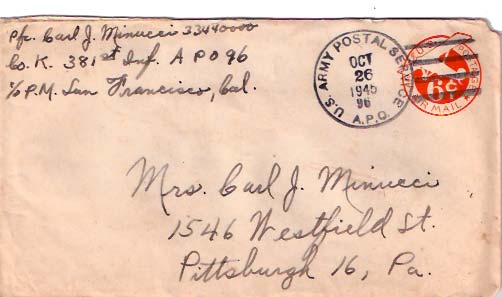 Pfc. Carl J. Minucci 33440000
Co. K. 381st Inf. A P O 96
c/o P.M. San Francisco, Cal.
U.S. ARMY POSTAL SERVICE
OCT
26
1945
96
A.P.O.
U.S. POSTAGE
6c
AIR MAIL
Mrs. Carl J. Minucci
1546 Westfield St.
Pittsburgh 16, Pa.